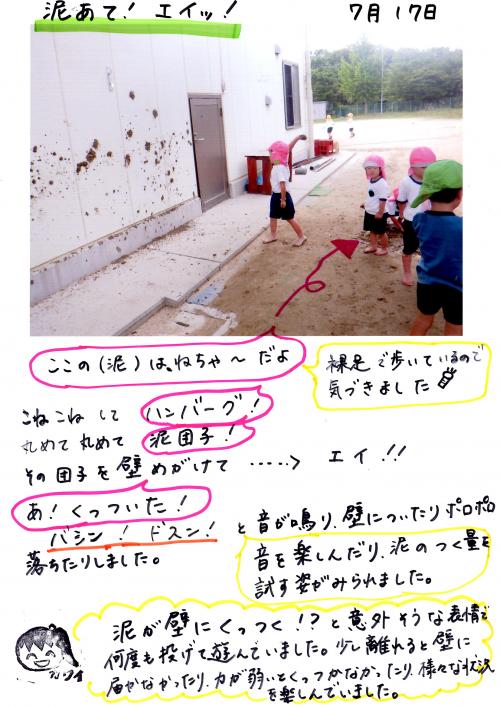 泥あて! エイッ! 7月17日
ここの(泥)は、ねちゃ〜だよ
裸足で歩いているので
気づきました
こねこねして ハンバーグ!
丸めて丸めて 泥団子!
その団子を壁めがけて ‥‥‥> エイ!!
あ!くっついた!
バシン! ドスン! と音が鳴り、壁についたりポロポロ
落ちたりしました。
音を楽しんだり、泥のつく量を
試す姿がみられました。
泥が壁にくっつく!?と意外そうな表情で
何度も投げて遊んでいました。少し離れると壁に
届かなかったり、力が弱いとくっつかなかったり、様々な状況
を楽しんでいました。